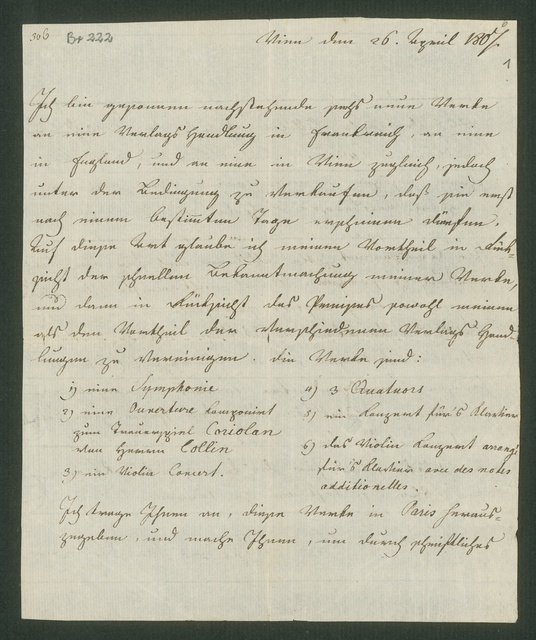 306 Br 222
Wien den 26. April 1807.
1
Ich bin gesonnen nachstehende sechs neue Werke
an eine Verlags Handlung in Frankreich, an eine
in England, und an eine in Wien zugleich, jedoch
unter der Bedingung zu verkaufen, daß sie erst
nach einem bestimmten Tage erscheinen dürfen.
Auf diese Art glaube ich meinen Vortheil in Rük-
sicht der schnellen Bekanntmachung meiner Werke,
und dann in Rüksicht des Preises sowohl meinen
als den Vortheil der verschiedenen Verlags Hand-
lungen zu vereinigen. Die Werke sind:
1) eine Symphonie
2) eine Ouverture komponirt
zum Trauerspiel Coriolan
des Herrn Collin
3) ein Violin Concert.
4) 3 Quatuors
5) ein Konzert für's Klavier
6) das Violin Konzert arrangi
für's Klavier avec des notes
additionelles.
Ich trage Ihnen an, diese Werke in Paris heraus-
zugeben, und mache Ihnen, um durch schriftliches